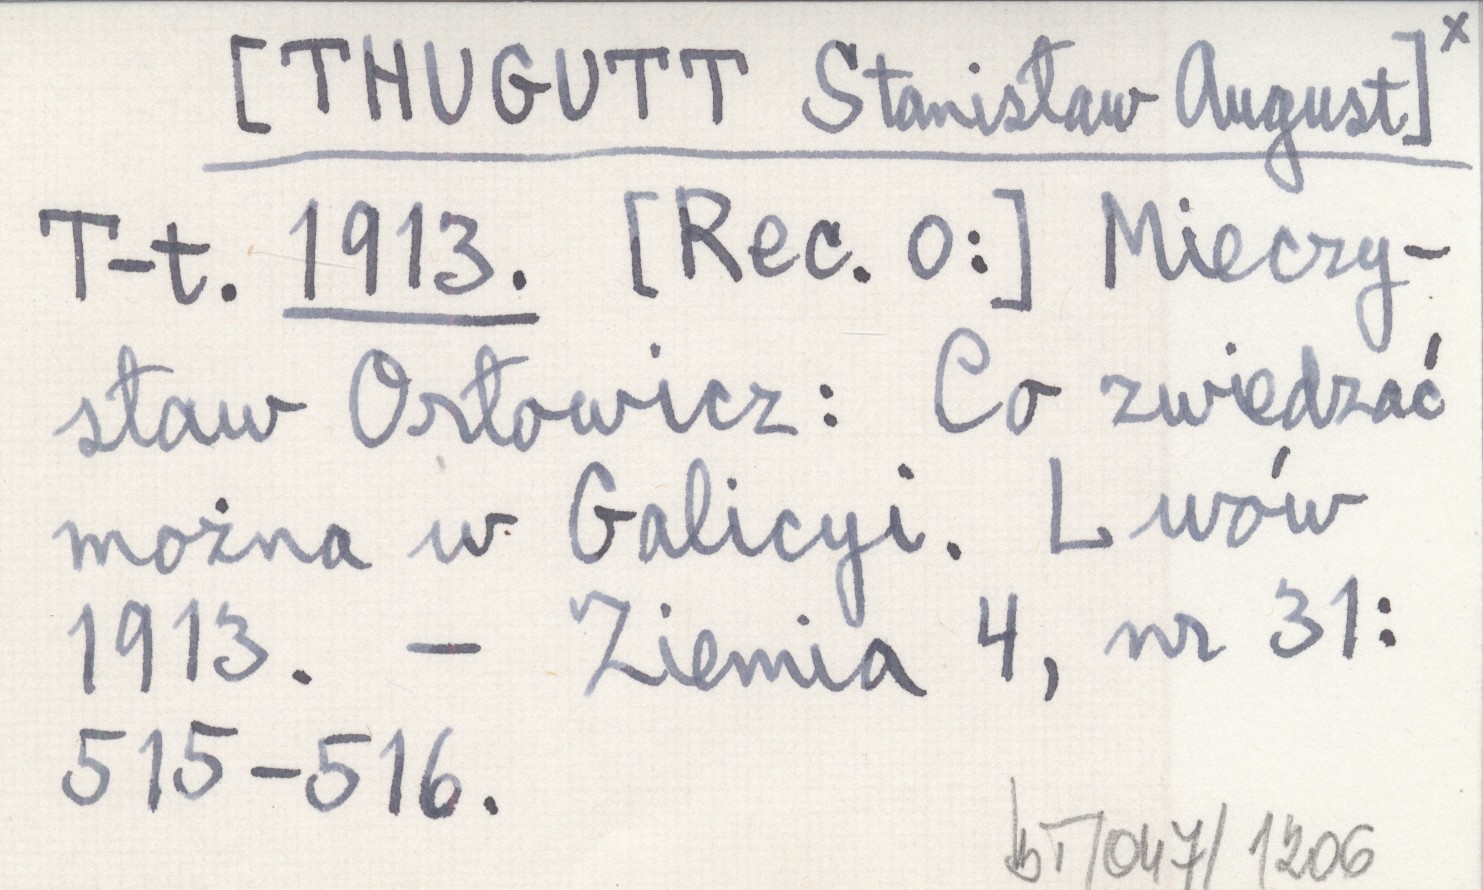 [THUGUTT Stanisław August]x
T-t. 1913. [Rec. o:] Mieczy-
sław Orłowicz: Co zwiedzać
można w Galicyi. Lwów
1913. - Ziemia 4, nr 31:
515-516.
bT/047/1206